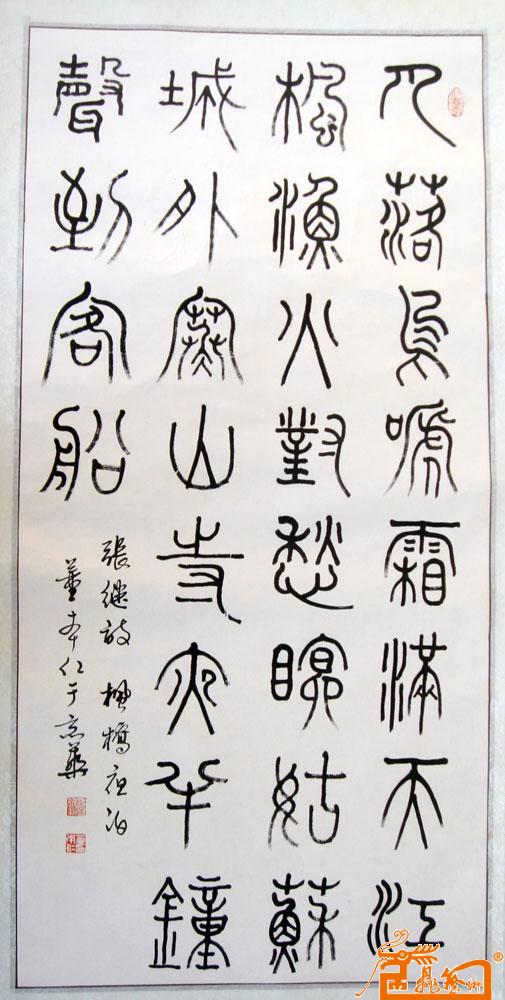 月落烏啼霜滿天江
楓漁火對愁眠姑蘇
城外寒山寺夜半鐘
聲到客船
張继詩 楓橋夜泊
董本仁于京華